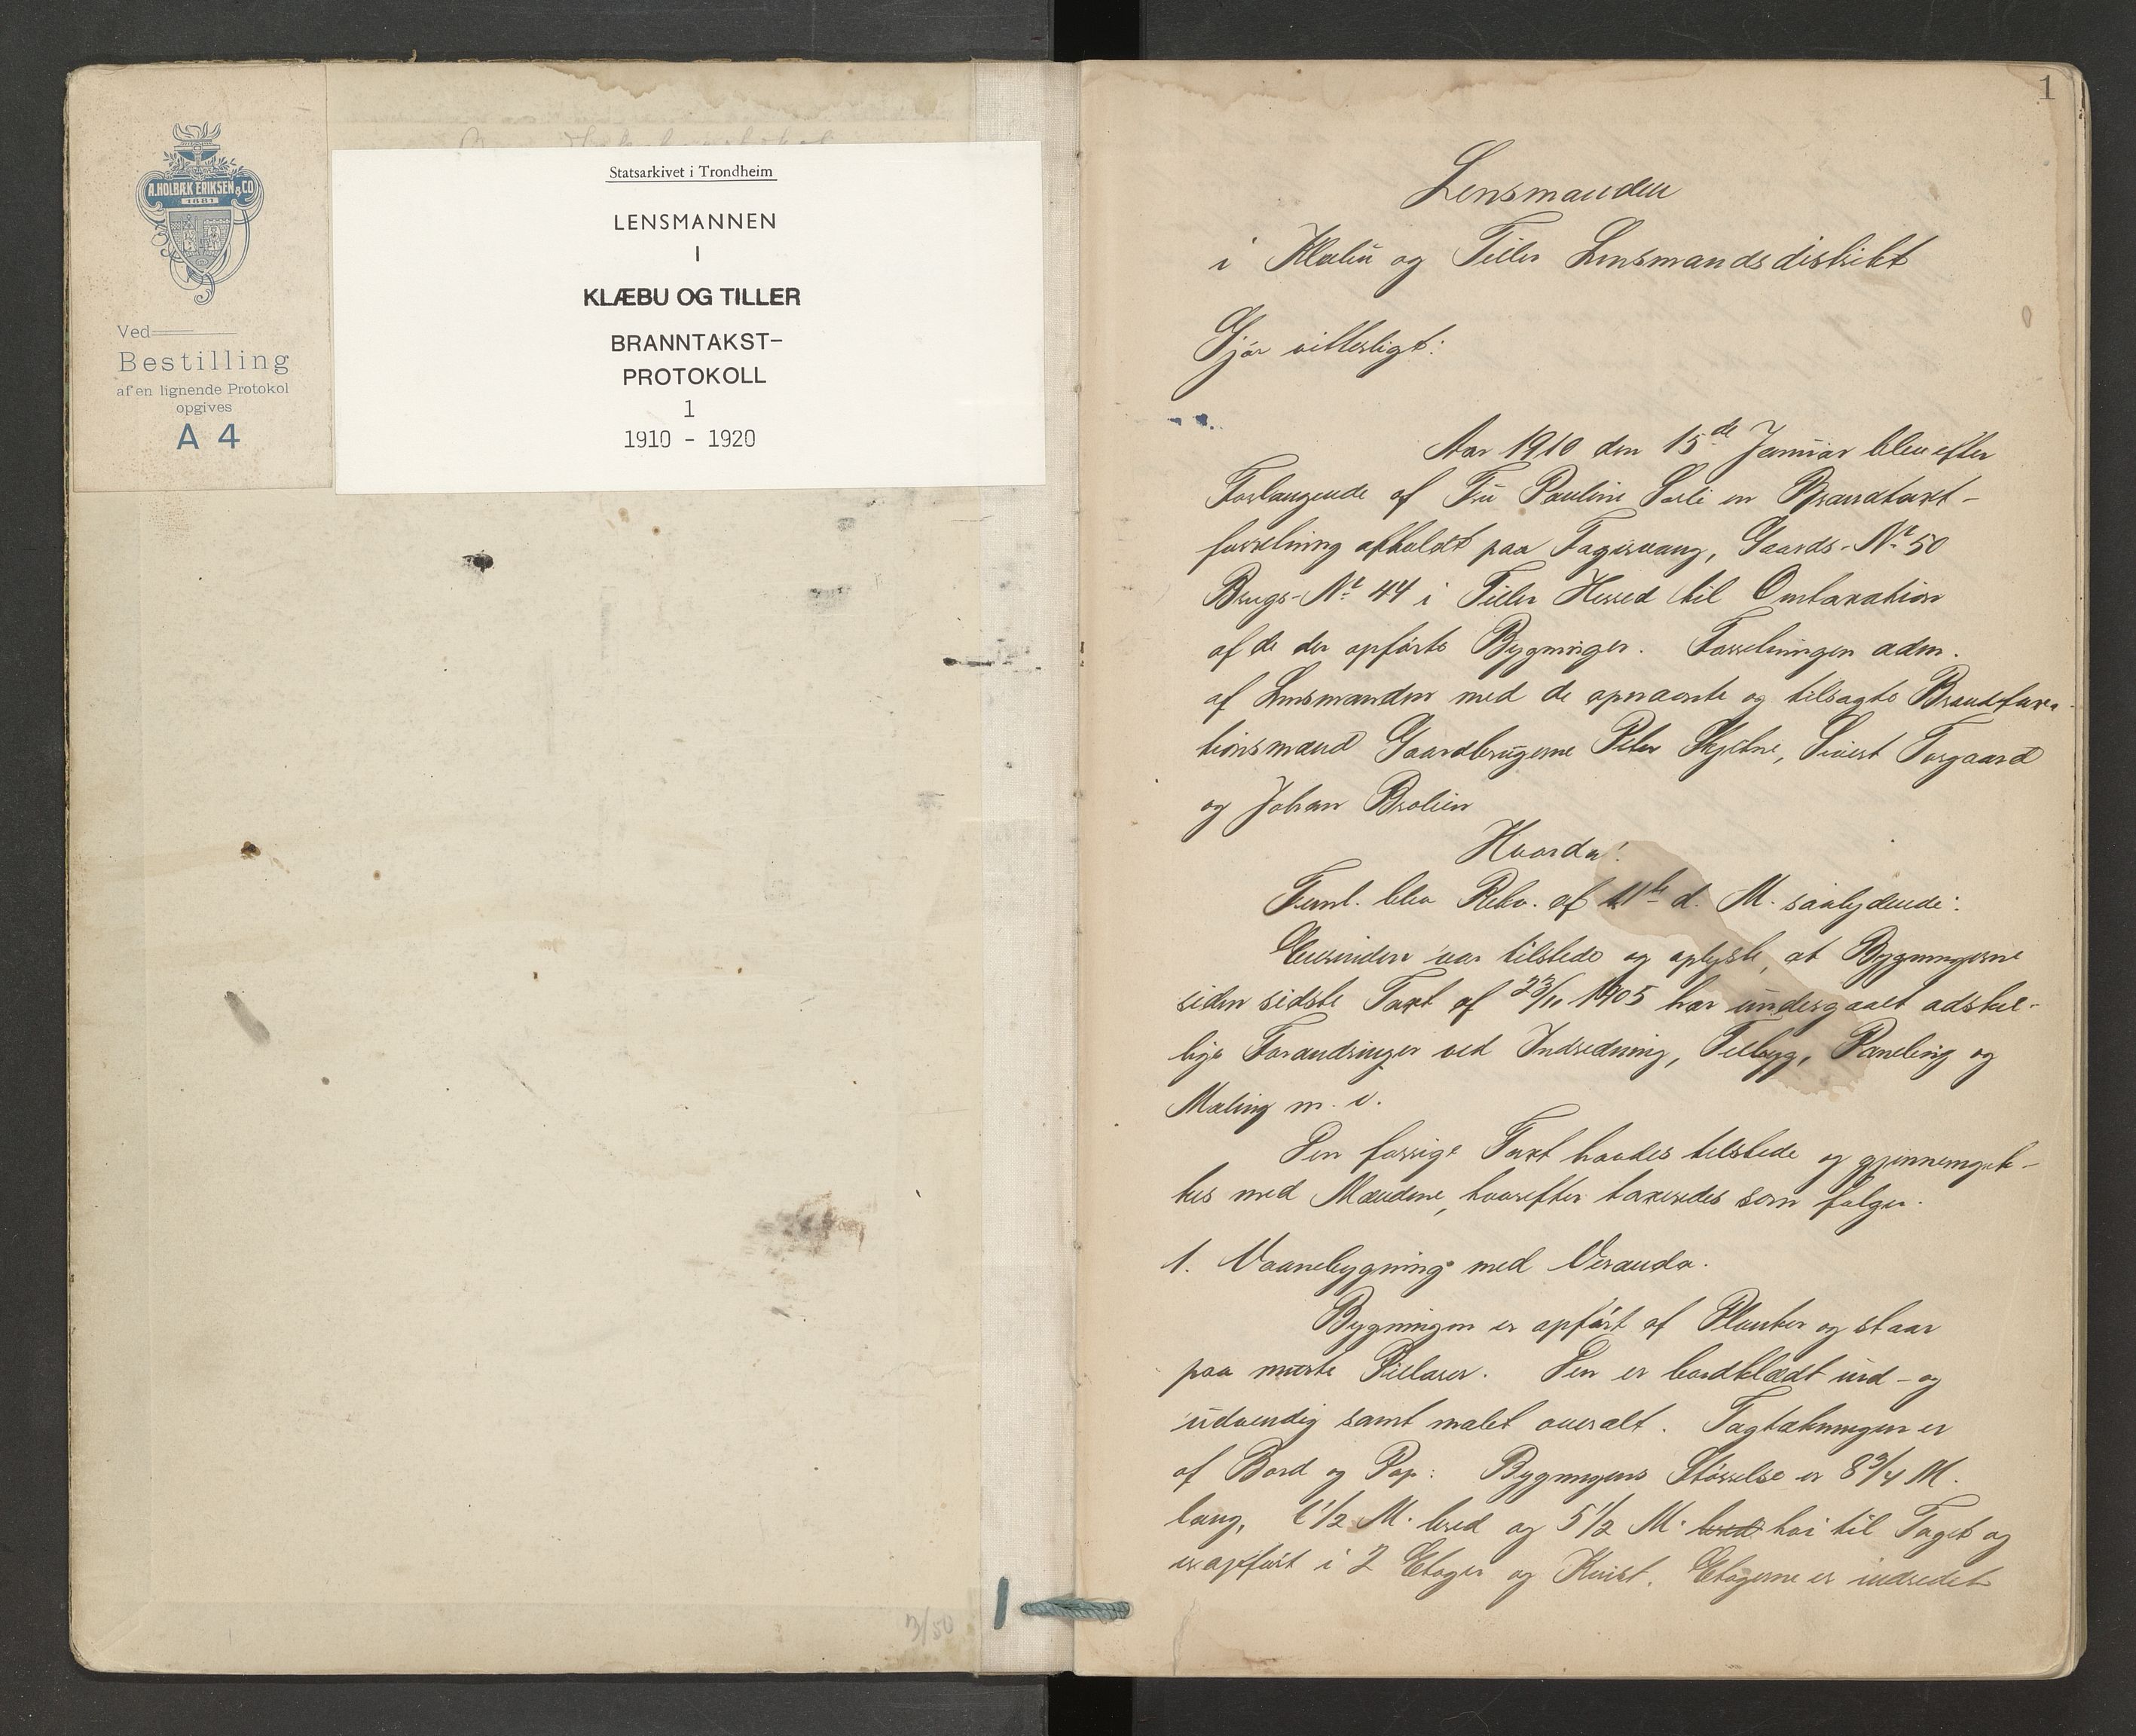 A. HOLBÆK ERIKSEN & CO
1881
Ved
Bestilling
af en lignende Protokol
opgives
A 4
Statsarkivet i Trondheim
LENSMANNEN
I
KLÆBU OG TILLER
BRANNTAKST-
PROTOKOLL
1
1910 - 1920
3/50
1
Lensmanden
i Klæbu og Tiller Lensmandsdistrikt
Gjør vitterligt:
Aar 1910 den 15de Januar blev efter
Forlangende af Fru Pauline Sorli en Brandtaxt-
forretning afholdt paa Fagervang, Gaards-Nr 50
Brugs-Nr 44 i Tiller Herred til Omtaxation
af de der opførte Bygninger. Forretningen adm.
af Lensmanden med de opnævnte og tilsagte Brandtaxa-
tionsmænd Gaardbrugerne Peter Skjetne, Sivert Torgaard
og Johan Brolien
Hvorda:
Freml. blev Rekv. af 11te d. M. saalydende:
Eierinden var tilstede og oplyste, at Bygningerne
siden sidste Taxt af 23/11 1905 har undergaaet adskil-
lige Forandringer ved Indredning, Tilbyg, Paneling og
Maling m. v.
Den forrige Taxt havdes tilstede og gjennemgik-
kes med Mændene, hvorefter taxeredes som følger.
1. Vaanebygning med Veranda.
Bygningen er opført af Planker og staar
paa murte Pillarer. Den er bordklædt ind- og
udvendig samt malet overalt. Tagtækningen er
af Bord og Pap. Bygningens Størrelse er 8 3/4 M.
lang, 6 1/2 M. bred og 5 1/2 M. bred høi til Taget og
er opført i 2 Etager og Kvist. Etagerne er indredet